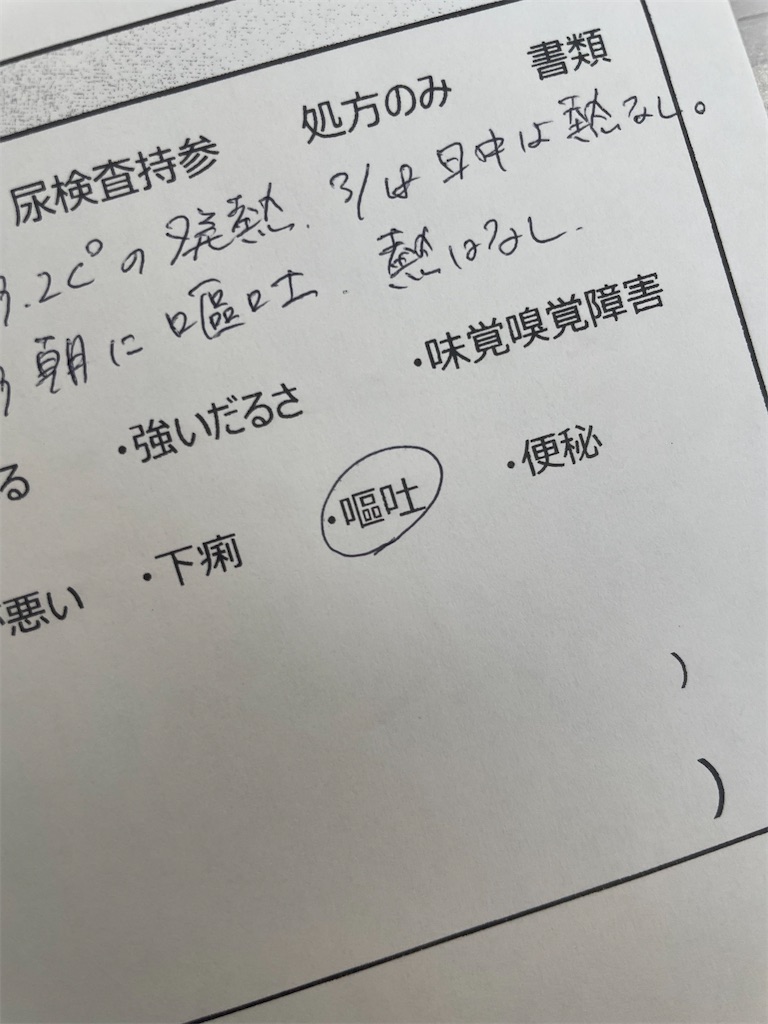 尿検査持参 処方のみ 書類
.2C°の発熱. 31は日中は熱なし。
朝に嘔吐. 熱はなし.
る ・強いだるさ ・味覚嗅覚障害
悪い ・下痢 ・嘔吐 ・便秘
)
)